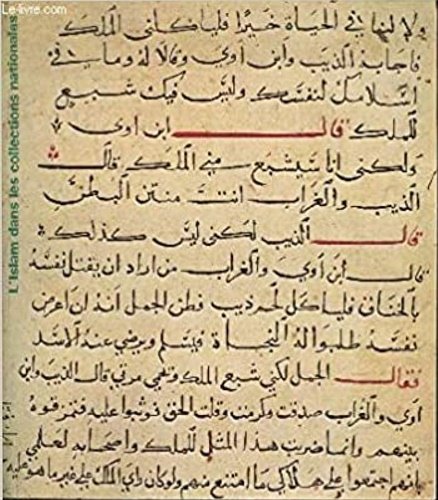 Le-livre.com
L'Islam dans les collections nationales
ولا لنها في الحياة خيرا فلياكلني الملك
فاجابه الذيب وابن اوي وقالا له وما في
اكلا مك لنفسك وليس فيك شبع
للملك قال ابن اوى
ولكنى انا سيشبع مني الملك قال
الذيب والغراب انت منتن البطن
قال الذيب لكنى ليس كذلك
قال ابن آوي والغراب من اراد ان يقتل نفسه
بالخناق فلياكل لحم ذيب فظن الجمل انه ان اعرض
نفسه طلبوا له النجاة فيسلم ويرضي عنه الاسد
فقال الجمل لكني شبع الملك ومرقي قال الذيب وابن
اوي والغراب صدقت وكرمت وقلت الحق فوثبوا عليه فمزقوه
بينهم وانما ضربت هذا المثل للملك واصحابه لعلمي
بانهم اجتمعوا علي هلاكي ما امتنع منهم ولو كان راي الملك علي غير ما هو عليه